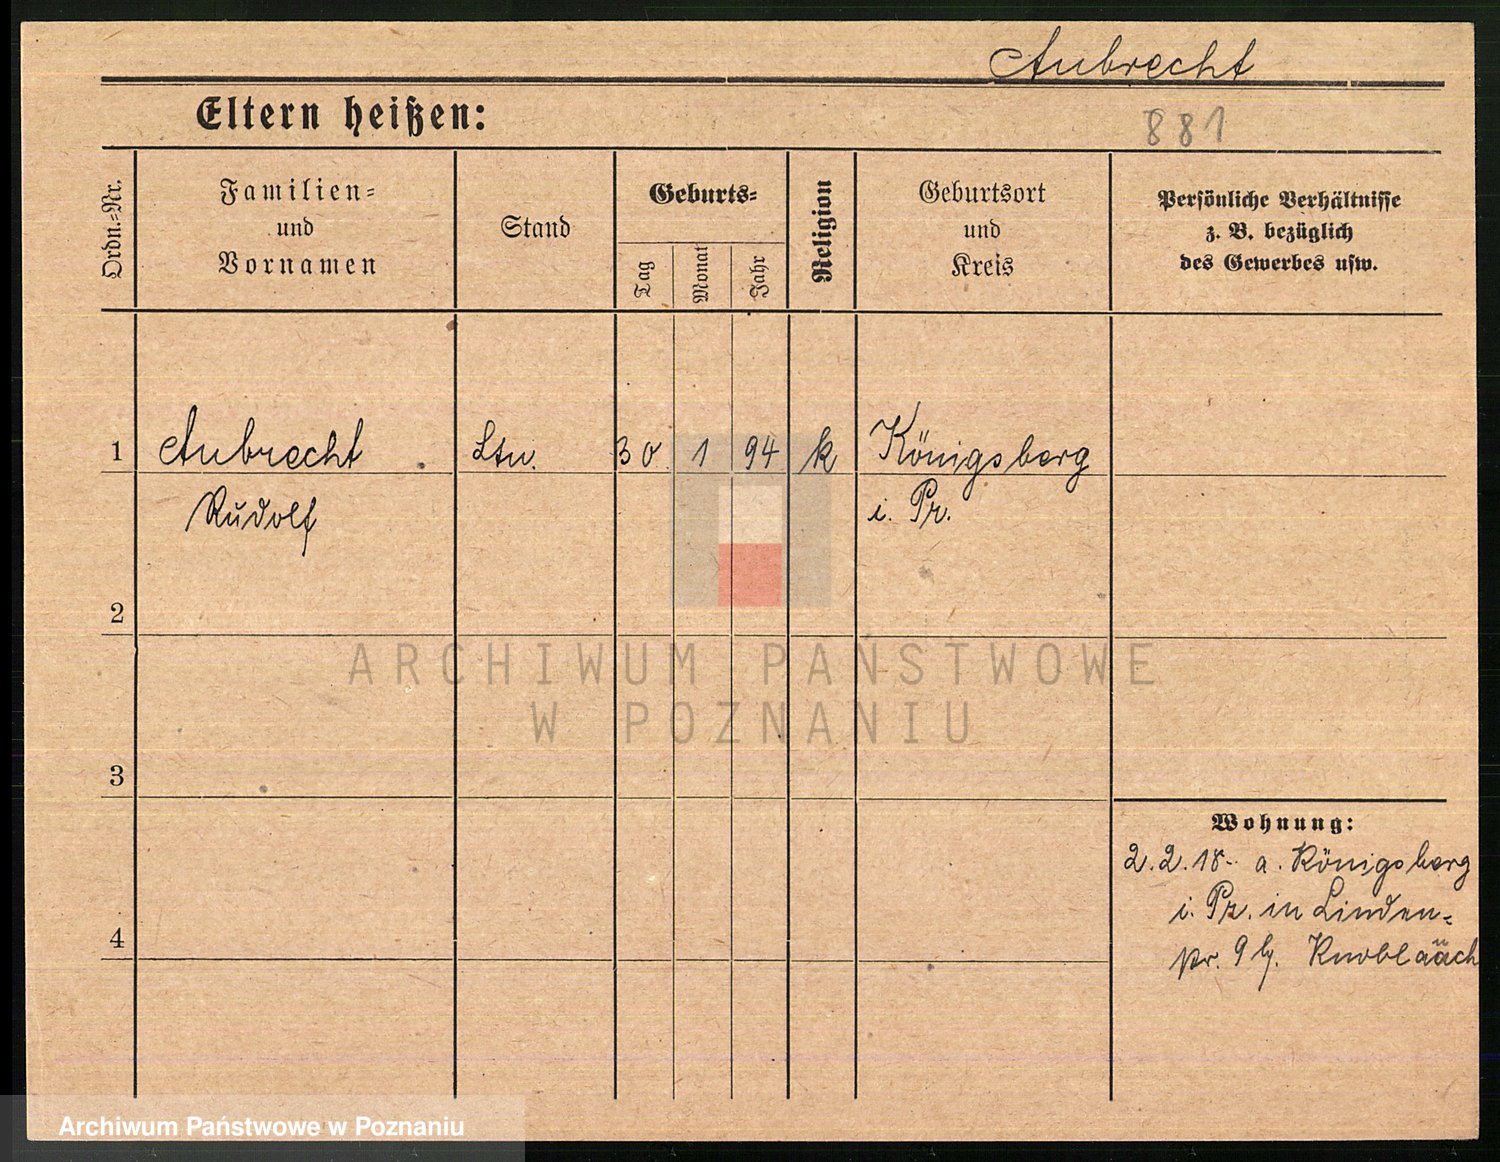 Aubrecht
Eltern heißen:
881
Ordn.=Nr.
Familien=
und
Vornamen
Stand
Geburts=
Tag
Monat
Jahr
Religion
Geburtsort
und
Kreis
Persönliche Verhältnisse
z. B. bezüglich
des Gewerbes usw.
1 Aubrecht Ltn. 30 1 94 k Königsberg
Rudolf i. Pr.
2
ARCHIWUM PAŃSTWOWE
W POZNANIU
3
Wohnung:
2.2.18- a. Königsberg
i. Pr. in Linden=
4
Archiwum Państwowe w Poznaniu